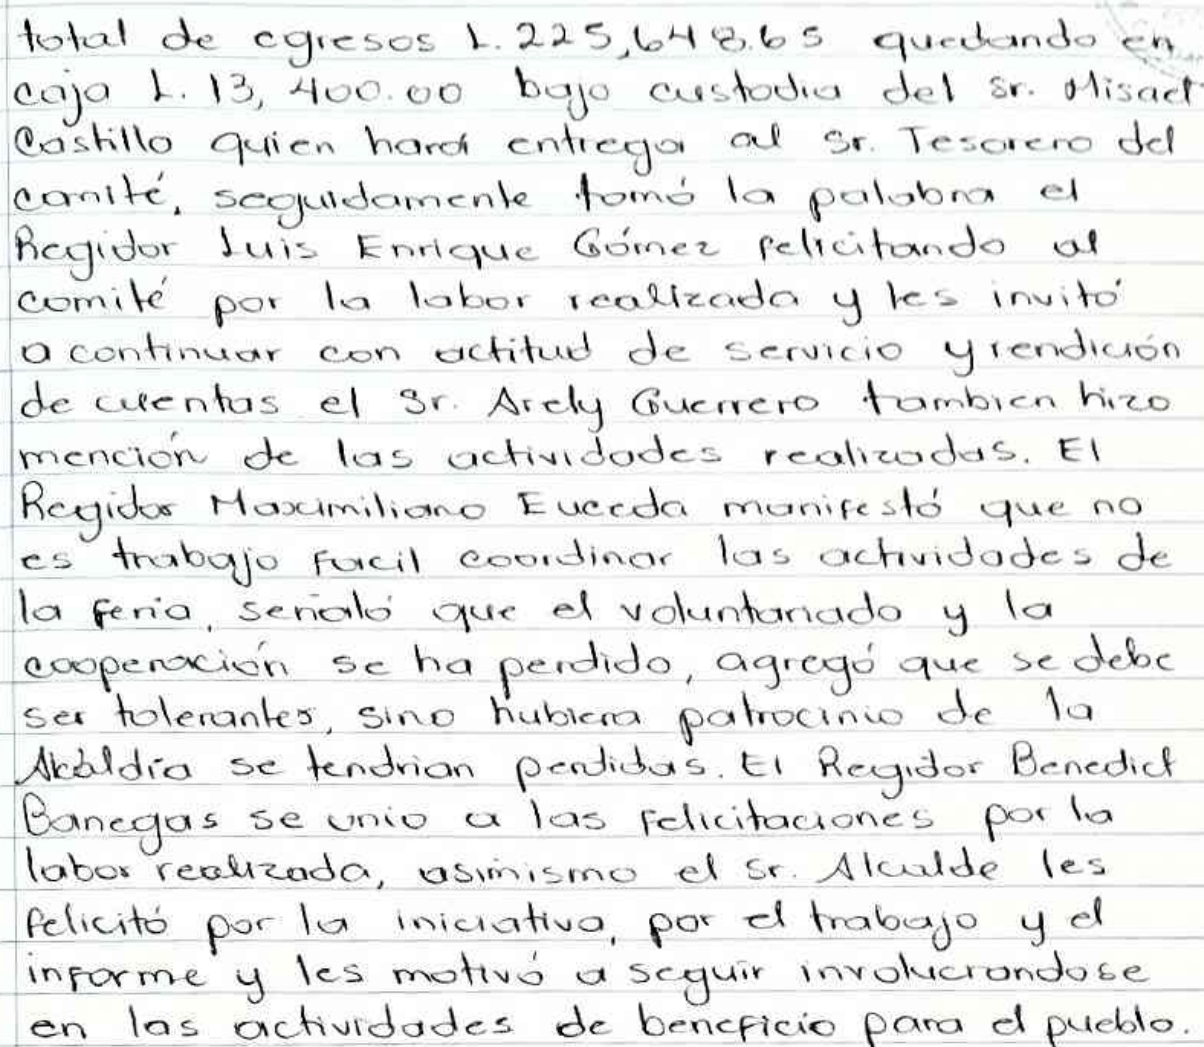 total de egresos L. 225,648.65 quedando en
caja L. 13,400.00 bajo custodia del Sr. Misael
Castillo quien hará entrega al Sr. Tesorero del
comité, seguidamente tomó la palabra el
Regidor Luis Enrique Gómez felicitando al
comité por la labor realizada y les invitó
a continuar con actitud de servicio y rendición
de cuentas el Sr. Arely Guerrero tambien hizo
mención de las actividades realizadas. El
Regidor Maximiliano Euceda manifestó que no
es trabajo facil coordinar las actividades de
la feria, señaló que el voluntariado y la
cooperación se ha perdido, agregó que se debe
ser tolerantes, sino hubiera patrocinio de la
Alcaldía se tendrian perdidas. El Regidor Benedict
Banegas se unio a las felicitaciones por la
labor realizada, asimismo el Sr. Alcalde les
felicitó por la iniciativa, por el trabajo y el
informe y les motivó a seguir involucrandose
en las actividades de beneficio para el pueblo.